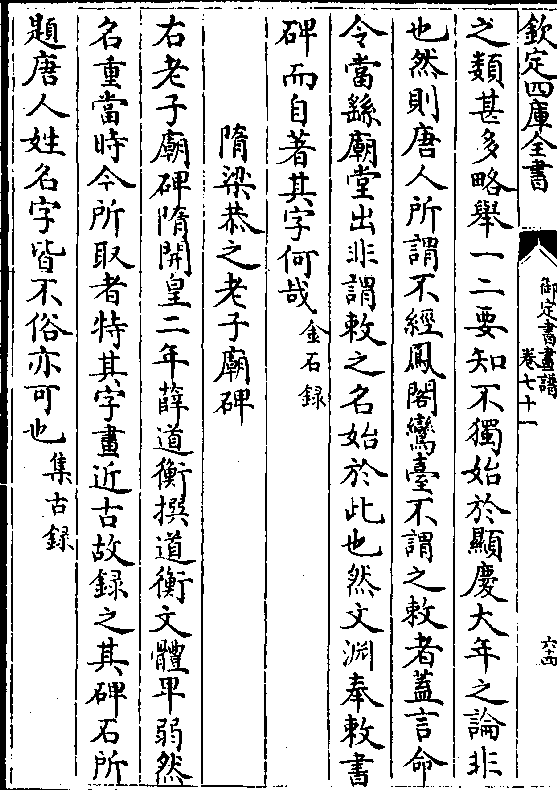 欽定四庫全書
御定書畫譜
卷七十一
六十四
之類甚多略舉一二要知不獨始於顯慶大年之論非
也然則唐人所謂不經鳳閣鸞臺不謂之敕者蓋言命
令當繇廟堂出非謂敕之名始於此也然文淵奉敕書
碑而自著其字何哉金石録
隋梁恭之老子廟碑
右老子廟碑隋開皇二年薛道衡撰道衡文體卑弱然
名重當時今所取者特其字畫近古故録之其碑石所
題唐人姓名字皆不俗亦可也集古録